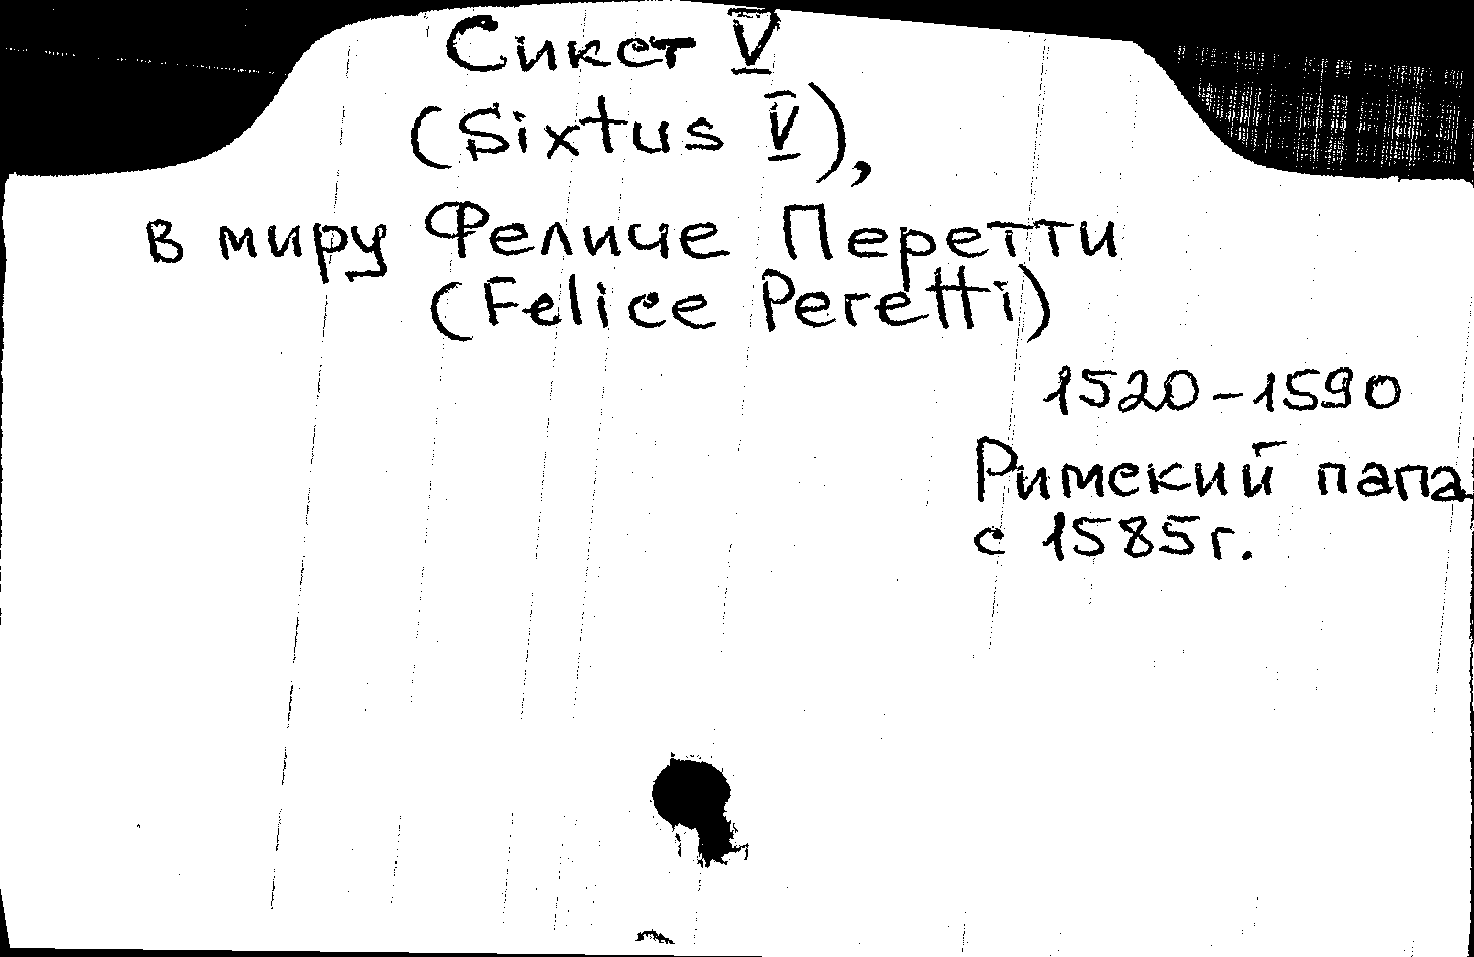 Сикст V
(Sixtus V),
в миру Феличе Перетти
(Felice Peretti)
1520-1590
Римский папа
с 1585г.